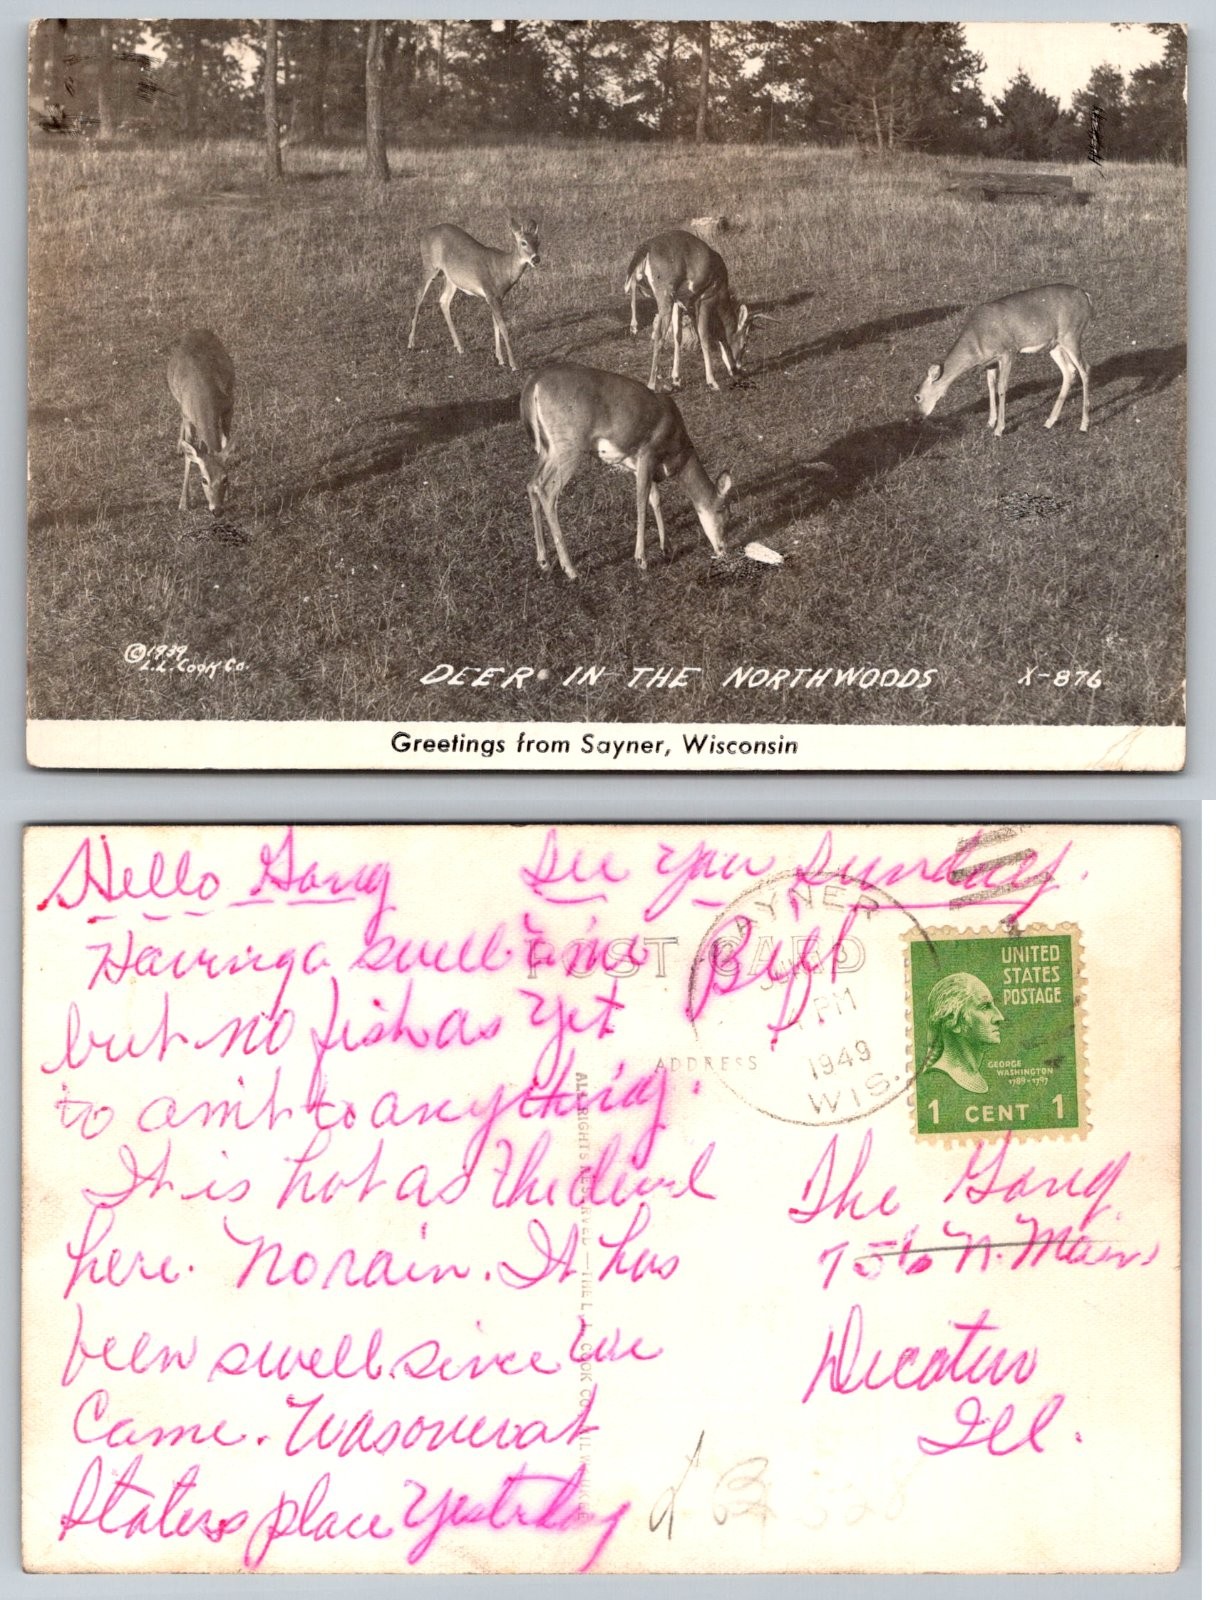 ©1939
L.L. Cook Co.
DEER IN THE NORTHWOODS
X-876
Greetings from Sayner, Wisconsin
Hello Gang
See you Sunday.
Having a swell time
Bill
but no fish as yet
to amt to anything.
It is hot as the devil
here. No rain. It has
been swell since we
came. Was over at
Staters place yesterday
POST CARD
ADDRESS
SAYNER
PM
1949
WIS.
UNITED
STATES
POSTAGE
GEORGE
WASHINGTON
1789-1797
1 CENT 1
ALL RIGHTS RESERVED — THE L. L. COOK CO.
The Gang
756 N. Main
Decatur
Ill.